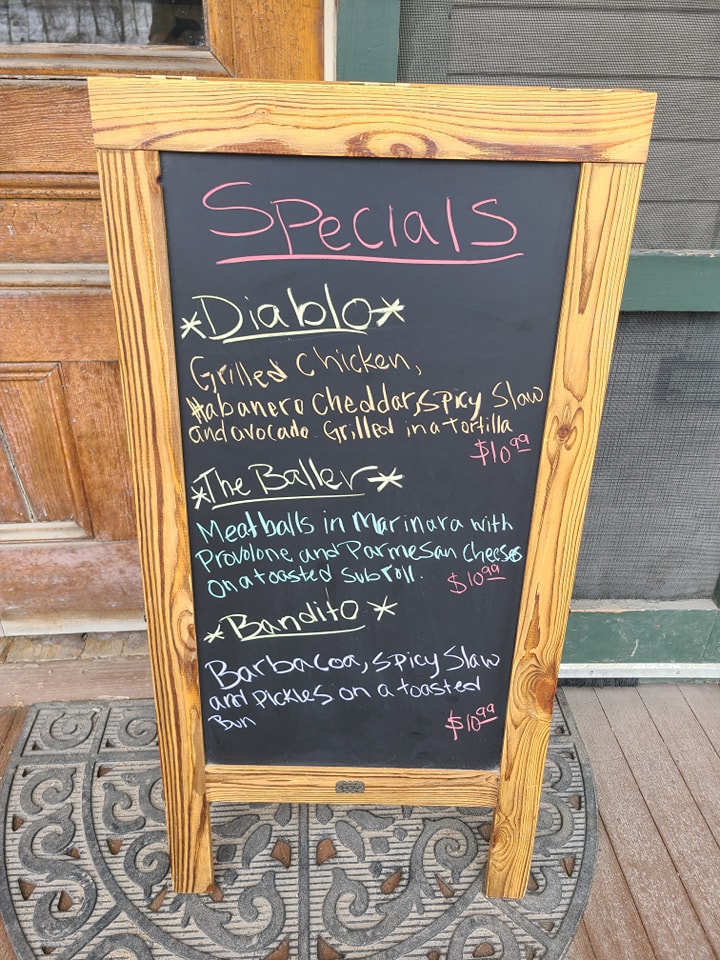 Specials
*Diablo*
Grilled Chicken,
Habanero Cheddar, Spicy Slaw
and avocado Grilled in a tortilla
$10.99
*The Baller*
Meatballs in Marinara with
Provolone and Parmesan Cheeses
on a toasted Sub roll. $10.99
*Bandito*
Barbacoa, Spicy Slaw
and Pickles on a toasted
Bun
$10.99